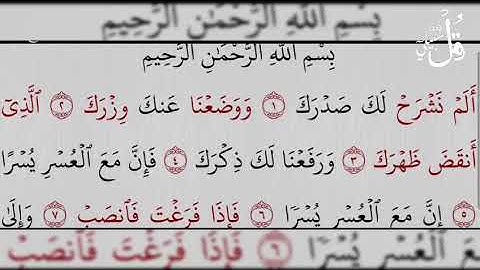 بِسْمِ اللَّهِ الرَّحْمَٰنِ الرَّحِيمِ
قُلْ
بِسْمِ اللَّهِ الرَّحْمَٰنِ الرَّحِيمِ
أَلَمْ نَشْرَحْ لَكَ صَدْرَكَ ١ وَوَضَعْنَا عَنكَ وِزْرَكَ ٢ ٱلَّذِىٓ
أَنقَضَ ظَهْرَكَ ٣ وَرَفَعْنَا لَكَ ذِكْرَكَ ٤ فَإِنَّ مَعَ ٱلْعُسْرِ يُسْرًا
٥ إِنَّ مَعَ ٱلْعُسْرِ يُسْرًا ٦ فَإِذَا فَرَغْتَ فَٱنصَبْ ٧ وَإِلَىٰ
مَعَ ٱلْعُسْرِ يُسْرًا ٦ فَإِذَا فَرَغْتَ فَٱنصَبْ